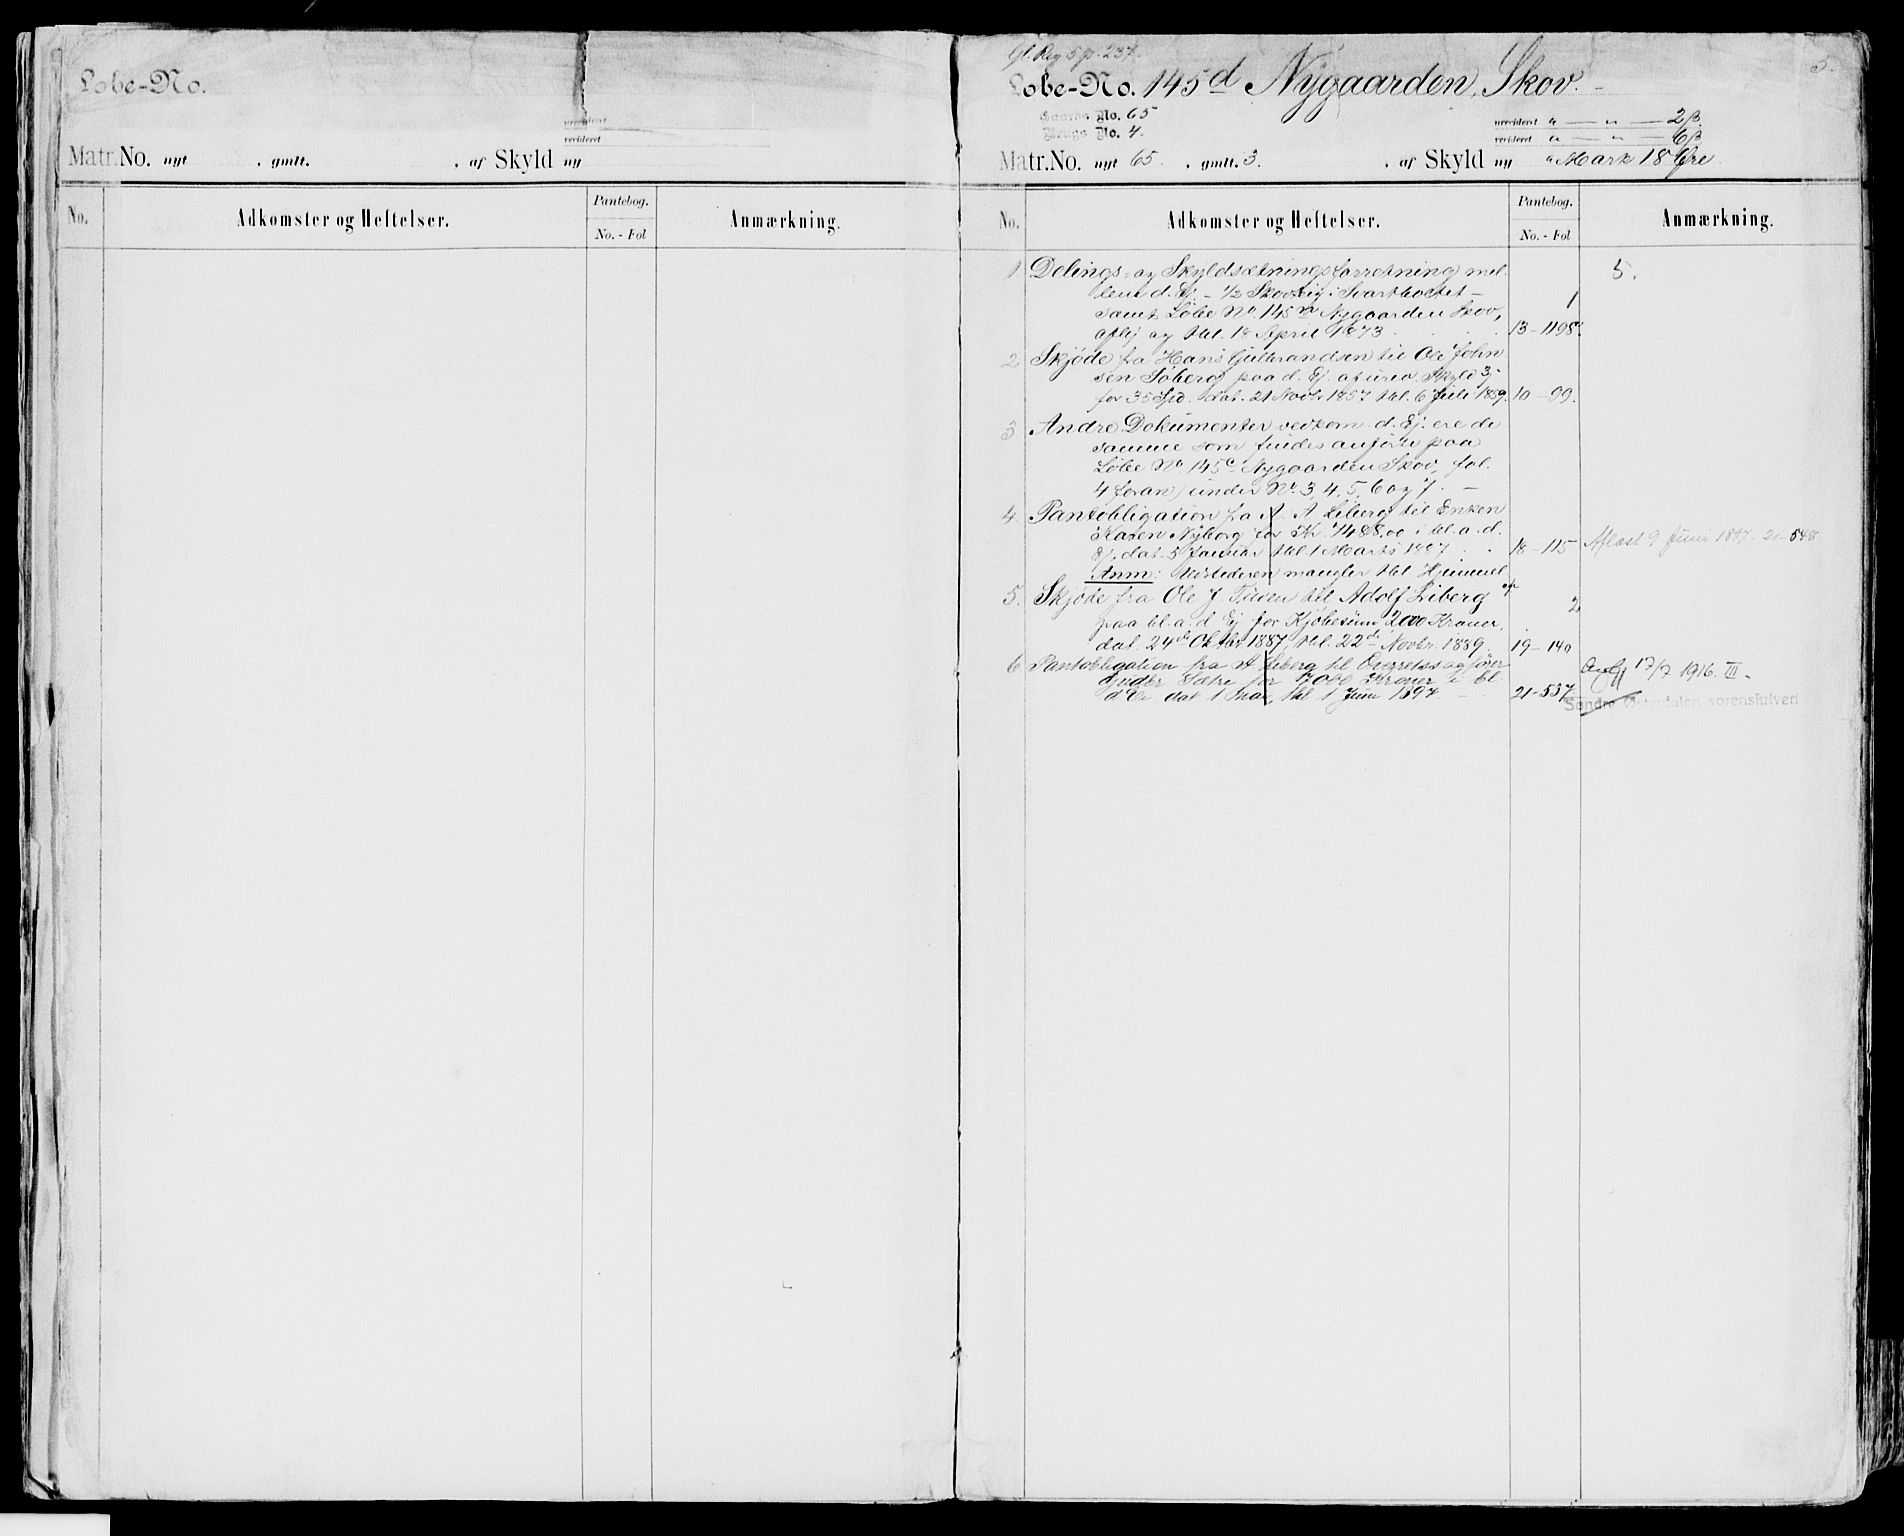 Løbe-No.
urevideret
revideret
Matr.No. nyt . gmlt. . af Skyld ny
No. Adkomster og Heftelser. Pantebog. No. - Fol Anmærkning.
Gl. Reg 5 p. 237.
5.
Løbe-No. 145d Nygaarden, Skov.
Gaards No. 65
Brugs No. 4.
urevideret " — " — 2 β.
revideret " — " — 6 β
Matr.No. nyt 65. . gmlt. 3. . af Skyld ny " Mark 18 Øre.
No. Adkomster og Heftelser. Pantebog. No. - Fol Anmærkning.
1 Delings- og Skyldsætningsforretning mel- 5.
lem d. Ej. – 1/2 Skovteig i Svartholtet – 1
samt Løbe No. 145m Nygaarden Skov,
afhj og thl. 18 April 1873 . . . 13 – 1198.
2 Skjøde fra Hans Gulbrandsen til Ole John-
sen Søberg paa d. Ej. af urev. Skyld 3
for 35 Spd. dat. 21 Novbr 1857 thl. 6 Juli 1859. 10 – 99.
3 Andre Dokumenter vedkom. d. Ej. ere de
samme som findes anførte paa
Løbe No. 145c Nygaarden Skov, fol.
4 foran) under No. 3, 4, 5, 6 og 7. –
4. Pantobligation fra A. A. Liberg til Enken
Karen Nyborg for Kr. 1488,00 i bl. a. d.
Ej. dat. 5 Januar thl. 1 Marts 1887 . . 18 – 115 Aflæst 9 Juni 1897. 21–548
Anm: Udstederen mangler thl. Hjemmel
5. Skjøde fra Ole J. Tuven til Adolf Liberg 2
paa bl. a. d. Ej. for Kjøbesum 2000 Kroner,
dat. 24de Oktbr. 1887, thl. 22de Novbr. 1889. 19 – 140
6 Pantobligation fra A Liberg til Overretssagfører
Sætre for 1700 Kroner i bl.
a. d. Ej. dat 1 Mai, thl 1 Juni 1897. – 21–537. 17/7 1916. III.
Søndre Østerdalen sorenskriveri